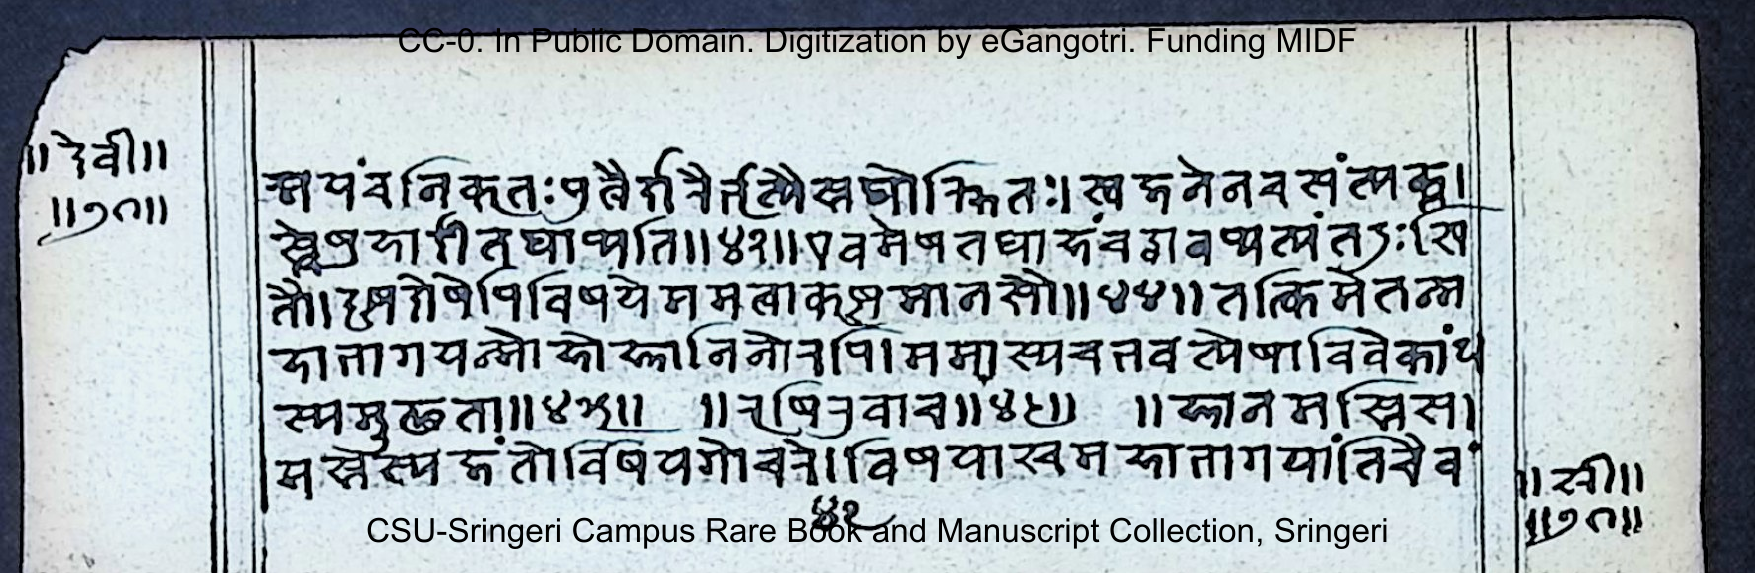 CC-0. In Public Domain. Digitization by eGangotri. Funding MIDF
॥देवी॥
॥७०॥
अयंचनिकृतःपुत्रैर्दारैर्भृत्यैस्तथोज्झितः।स्वजनेनचसंत्यक्त
तथाप्यति॥४३॥एवमेषतथाहंचद्वावप्यत्यंतदुःखि
तौ॥दृष्टदोषेपिविषयेममत्वाकृष्टमानसौ॥४४॥तत्किमेतन्म
हाभागयन्मोहोज्ञानिनोरपि।ममास्यचभवत्येषाविवेकांध
स्यमूढता॥४५॥ ॥ऋषिरुवाच॥४६॥ ॥ज्ञानमस्तिस।
मस्तस्यजंतोर्विषयगोचरे।विषयाश्चमहाभागयांतिचैवं
४१
॥७०॥
CSU-Sringeri Campus Rare Book and Manuscript Collection, Sringeri